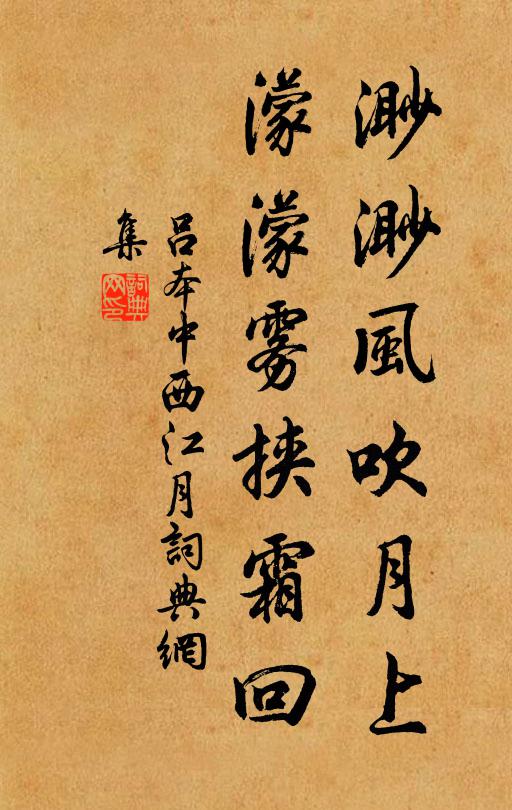 渺渺風吹月上
濛濛雾挟霜回
吕本中西江月詞典網
集
詞典
网印